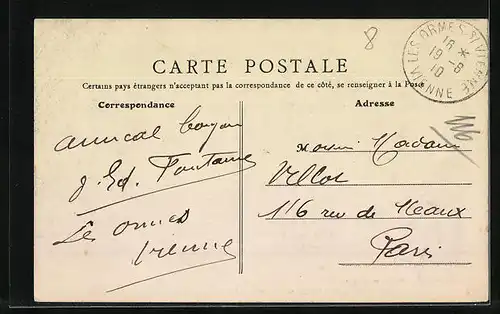 8
LES ORMES S/VIENNE
16 *
19 -8
10
VIENNE
CARTE POSTALE
Certains pays étrangers n'acceptant pas la correspondance de ce côté, se renseigner à la Poste
Correspondance
Adresse
amical
J. Ed. Fontaine
Les ormes
Vienne
116
Madame
Villot
116 rue de Meaux
Paris